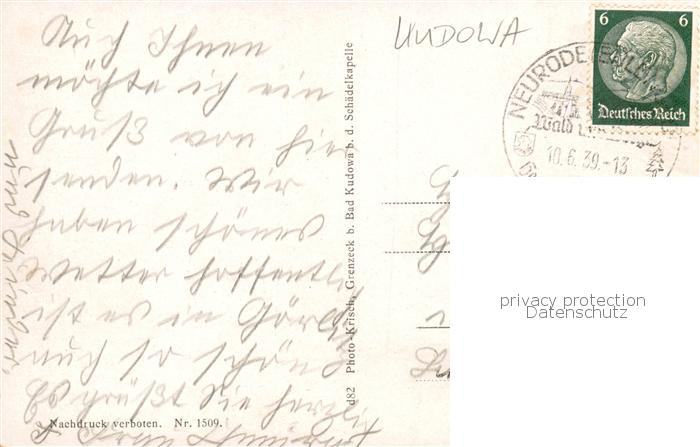 Auch Ihnen
möchte ich ein
Gruß von hier
senden. Wir
haben schönes
Wetter hoffentl
ist es in Görl
auch so schön
Es grüßt Sie herzli
Frau
Nachdruck verboten. Nr. 1509.
d82 Photo-Krisch, Grenzeck b. Bad Kudowa b. d. Schädelkapelle
KUDOWA
6 6
Deutsches Reich
NEURODE (EULE
Wald
10.6.39.-13
privacy protection
Datenschutz